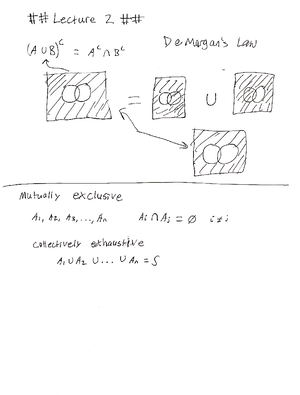 ## Lecture 2 ##
DeMorgan's Law
(A ∪ B)ᶜ = Aᶜ ∩ Bᶜ
= ∪
Mutually exclusive
A₁, A₂, A₃, ..., Aₙ Aᵢ ∩ Aⱼ = ∅ i ≠ j
collectively exhaustive
A₁ ∪ A₂ ∪ ... ∪ Aₙ = S